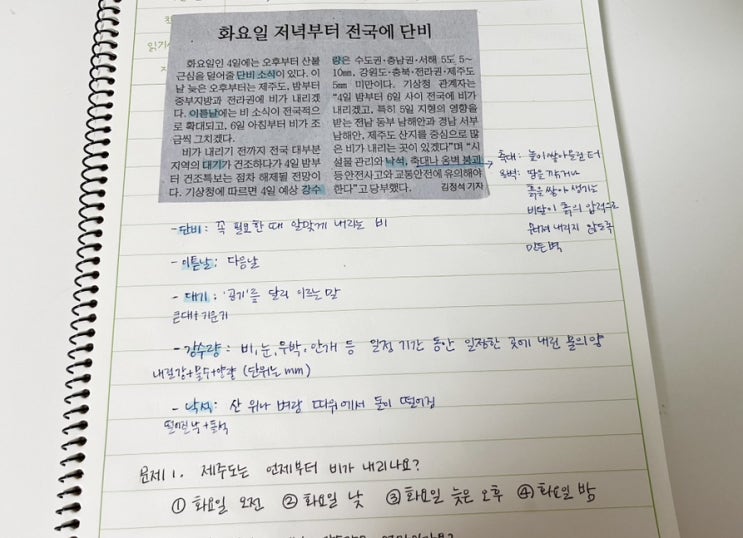 읽기
화요일 저녁부터 전국에 단비
화요일인 4일에는 오후부터 산불
근심을 덜어줄 단비 소식이 있다. 이
날 늦은 오후부터는 제주도, 밤부터
중부지방과 전라권에 비가 내리겠
다. 이튿날에는 비 소식이 전국적으
로 확대되고, 6일 아침부터 비가 조
금씩 그치겠다.
비가 내리기 전까지 전국 대부분
지역의 대기가 건조하다가 4일 밤부
터 건조특보는 점차 해제될 전망이
다. 기상청에 따르면 4일 예상 강수
량은 수도권·충남권·서해 5도 5~
10㎜, 강원도·충북·전라권·제주도
5㎜ 미만이다. 기상청 관계자는
“4일 밤부터 6일 사이 전국에 비가
내리겠고, 특히 5일 지형의 영향을
받는 전남 동부 남해안과 경남 서부
남해안, 제주도 산지를 중심으로 많
은 비가 내리는 곳이 있겠다”며 “시
설물 관리와 낙석, 축대나 옹벽 붕괴
등 안전사고와 교통안전에 유의해야
한다”고 당부했다. 김정석 기자
축대: 돌이 쌓아올린 터
옹벽: 땅을 깎거나
흙을 쌓아 생기는
비탈이 흙의 압력으로
무너져 내리지 않도록
만든 벽
- 단비: 꼭 필요한 때 알맞게 내리는 비
- 이튿날: 다음날
- 대기: '공기'를 달리 이르는 말
큰대+기운기
- 강수량: 비, 눈, 우박, 안개 등 일정 기간 동안 일정한 곳에 내린 물의 양
내릴강+물수+양량 (단위는 mm)
- 낙석: 산 위나 벼랑 따위에서 돌이 떨어짐
떨어질낙+돌석
문제 1. 제주도는 언제부터 비가 내리나요?
① 화요일 오전 ② 화요일 낮 ③ 화요일 늦은 오후 ④ 화요일 밤